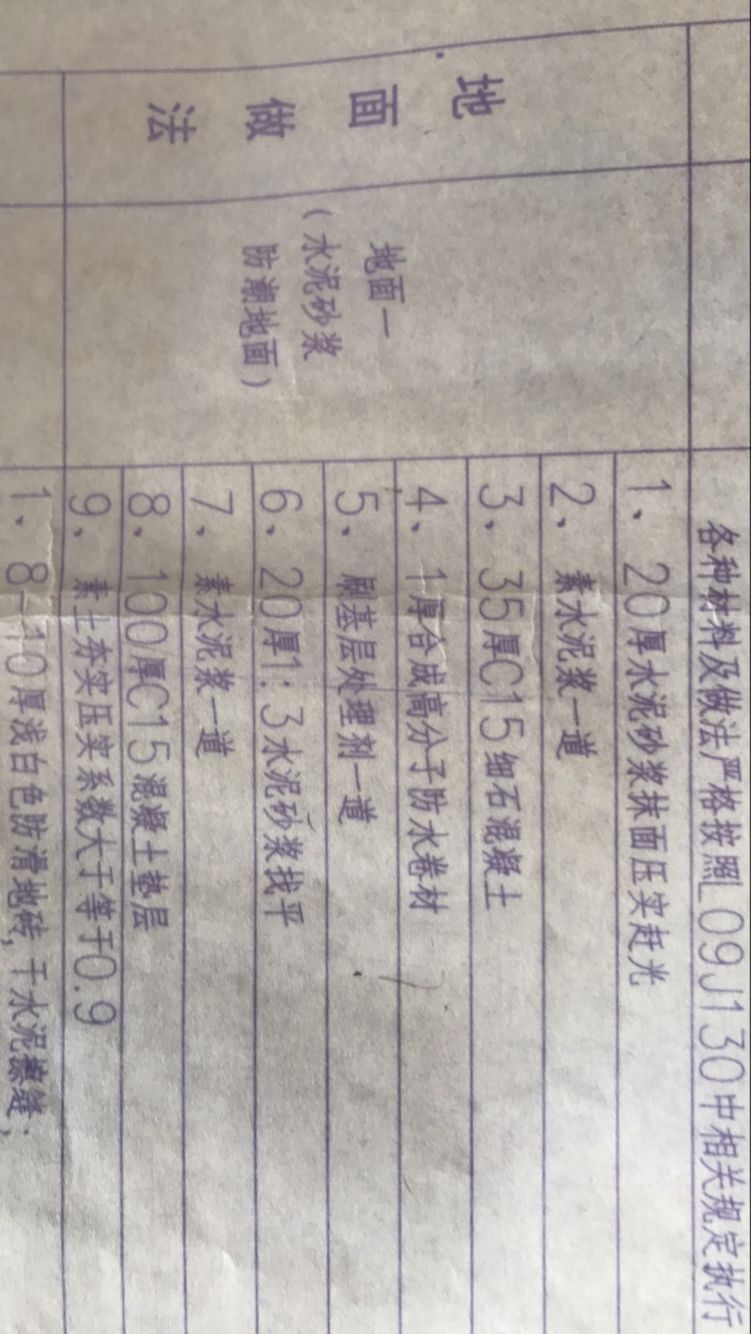 各种材料及做法严格按照L09J130中相关规定执行
地面做法
地面一
(水泥砂浆
防潮地面)
1、20厚水泥砂浆抹面压实赶光
2、素水泥浆一道
3、35厚C15细石混凝土
4、1厚合成高分子防水卷材
5、刷基层处理剂一道
6、20厚1:3水泥砂浆找平
7、素水泥浆一道
8、100厚C15混凝土垫层
9、素土夯实压实系数大于等于0.9
1、8-10厚浅白色防滑地砖,干水泥擦缝;